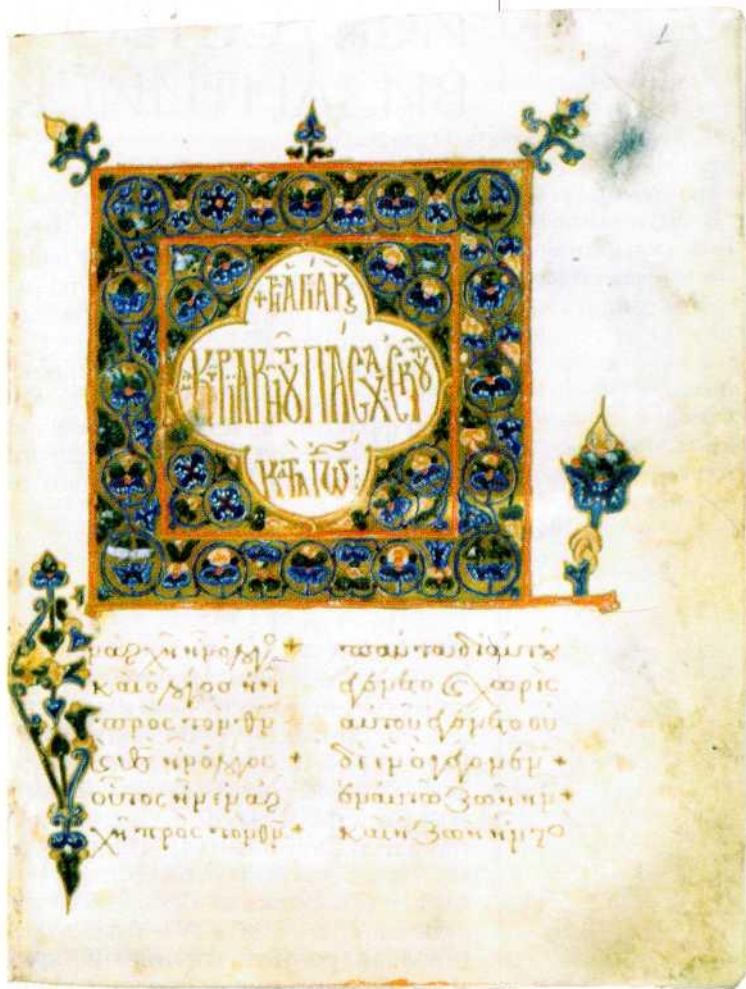 + Τῇ ἁγίᾳ κ
κυριακῇ τοῦ πάσχα ἐκ τοῦ
κατὰ Ἰω:
ἐν ἀρχῆ ἦν ὁ λόγος +
καὶ ὁ λόγος ἦν
πρὸς τὸν θν
καὶ θς ἦν ὁ λόγος +
οὗτος ἦν ἐν ἀρ
χῆ πρὸς τὸν θν +
πάντα δι αὐτοῦ
ἐγένετο καὶ χωρὶς
αὐτοῦ ἐγένετο οὐ
δὲ ἓν ὃ γέγονεν +
ἐν αὐτῶ ζωὴ ἦν +
καὶ ἡ ζωὴ ἦν τὸ